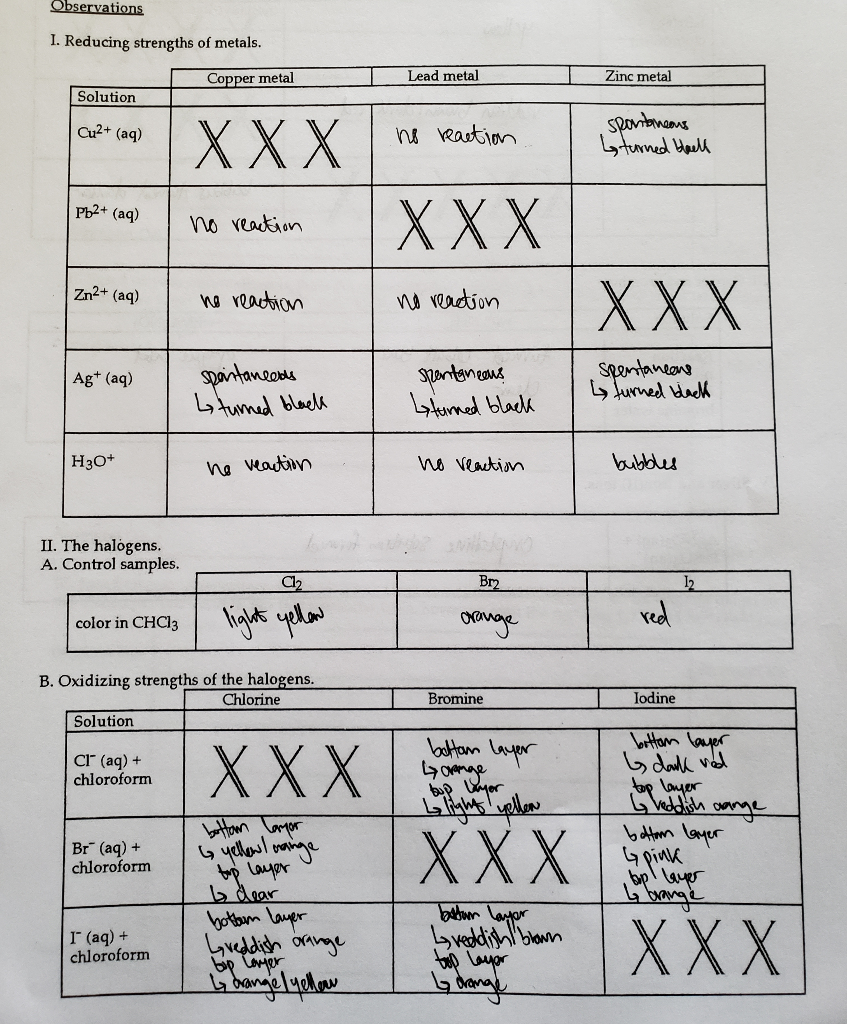 Observations
I. Reducing strengths of metals.
Copper metal Lead metal Zinc metal
Solution
Cu2+ (aq) X X X no reaction spontaneous
↳ turned black
Pb2+ (aq) no reaction X X X
Zn2+ (aq) no reaction no reaction X X X
Ag+ (aq) spontaneous spontaneous spontaneous
↳ turned black ↳ turned black ↳ turned black
H3O+ no reaction no reaction bubbles
II. The halogens.
A. Control samples.
Cl2 Br2 I2
color in CHCl3 light yellow orange red
B. Oxidizing strengths of the halogens.
Chlorine Bromine Iodine
Solution
Cl- (aq) +
chloroform
X X X
bottom layer
↳ orange
top layer
↳ light yellow
bottom layer
↳ dark red
top layer
↳ reddish orange
Br- (aq) +
chloroform
bottom layer
↳ yellow/orange
top layer
↳ clear
X X X
bottom layer
↳ pink
top layer
↳ orange
I- (aq) +
chloroform
bottom layer
↳ reddish orange
top layer
↳ orange/yellow
bottom layer
↳ reddish/brown
top layer
↳ orange
X X X